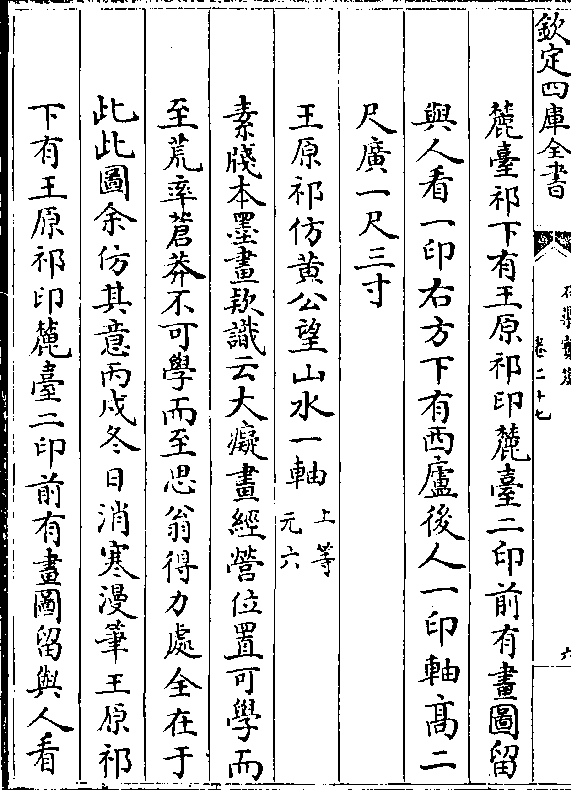 欽定四庫全書
卷二十七
六
麓臺祁下有王原祁印麓臺二印前有畫圖留
與人看一印右方下有西廬後人一印軸高二
尺廣一尺三寸
王原祁仿黃公望山水一軸 上等
元六
素牋本墨畫欵識云大癡畫經營位置可學而
至荒率蒼莽不可學而至思翁得力處全在于
此此圖余仿其意丙戌冬日消寒漫筆王原祁
下有王原祁印麓臺二印前有畫圖留與人看